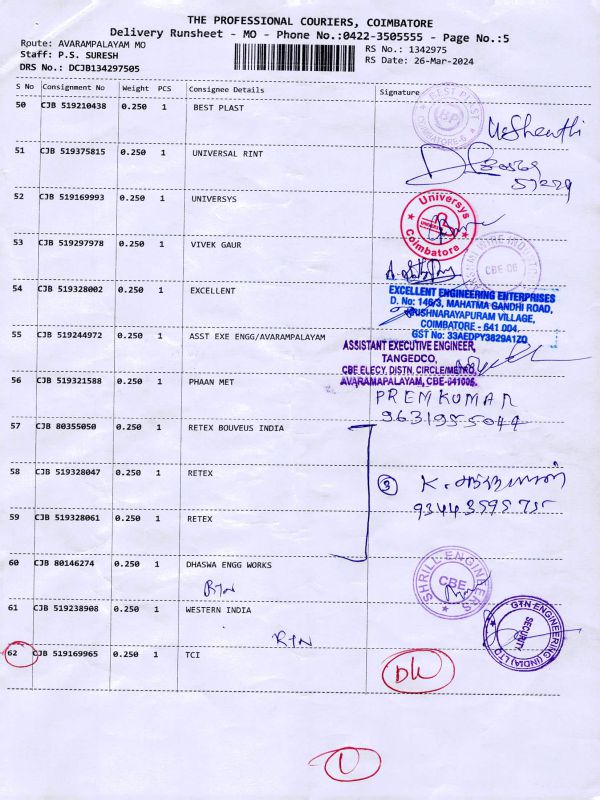 THE PROFESSIONAL COURIERS, COIMBATORE
Delivery Runsheet - MO - Phone No.:0422-3505555 - Page No.:5
Route: AVARAMPALAYAM MO
RS No.: 1342975
Staff: P.S. SURESH
RS Date: 26-Mar-2024
DRS No.: DCJB134297505
S No Consignment No Weight PCS Consignee Details Signature
50 CJB 519210438 0.250 1 BEST PLAST
BEST PLAST
BP
COIMBATORE-6
51 CJB 519375815 0.250 1 UNIVERSAL RINT
52 CJB 519169993 0.250 1 UNIVERSYS
Universys
Coimbatore
53 CJB 519297978 0.250 1 VIVEK GAUR
CBE 06
54 CJB 519328002 0.250 1 EXCELLENT
EXCELLENT ENGINEERING ENTERPRISES
D. No: 146/3, MAHATMA GANDHI ROAD,
KRUSHNARAYAPURAM VILLAGE,
COIMBATORE - 641 004.
GST No: 33AEDPY3829A1ZO
55 CJB 519244972 0.250 1 ASST EXE ENGG/AVARAMPALAYAM
ASSISTANT EXECUTIVE ENGINEER,
TANGEDCO,
CBE ELECY, DISTN, CIRCLE/METRO,
AVARAMAPALAYAM, CBE-641006.
56 CJB 519321588 0.250 1 PHAAN MET
PREMKUMAR
57 CJB 80355050 0.250 1 RETEX BOUVEUS INDIA
58 CJB 519328047 0.250 1 RETEX
3
59 CJB 519328061 0.250 1 RETEX
60 CJB 80146274 0.250 1 DHASWA ENGG WORKS
SHRILL ENGINEERS
CBE
61 CJB 519238908 0.250 1 WESTERN INDIA
GTN ENGINEERING (INDIA) LTD
SECURITY
62 CJB 519169965 0.250 1 TCI
1